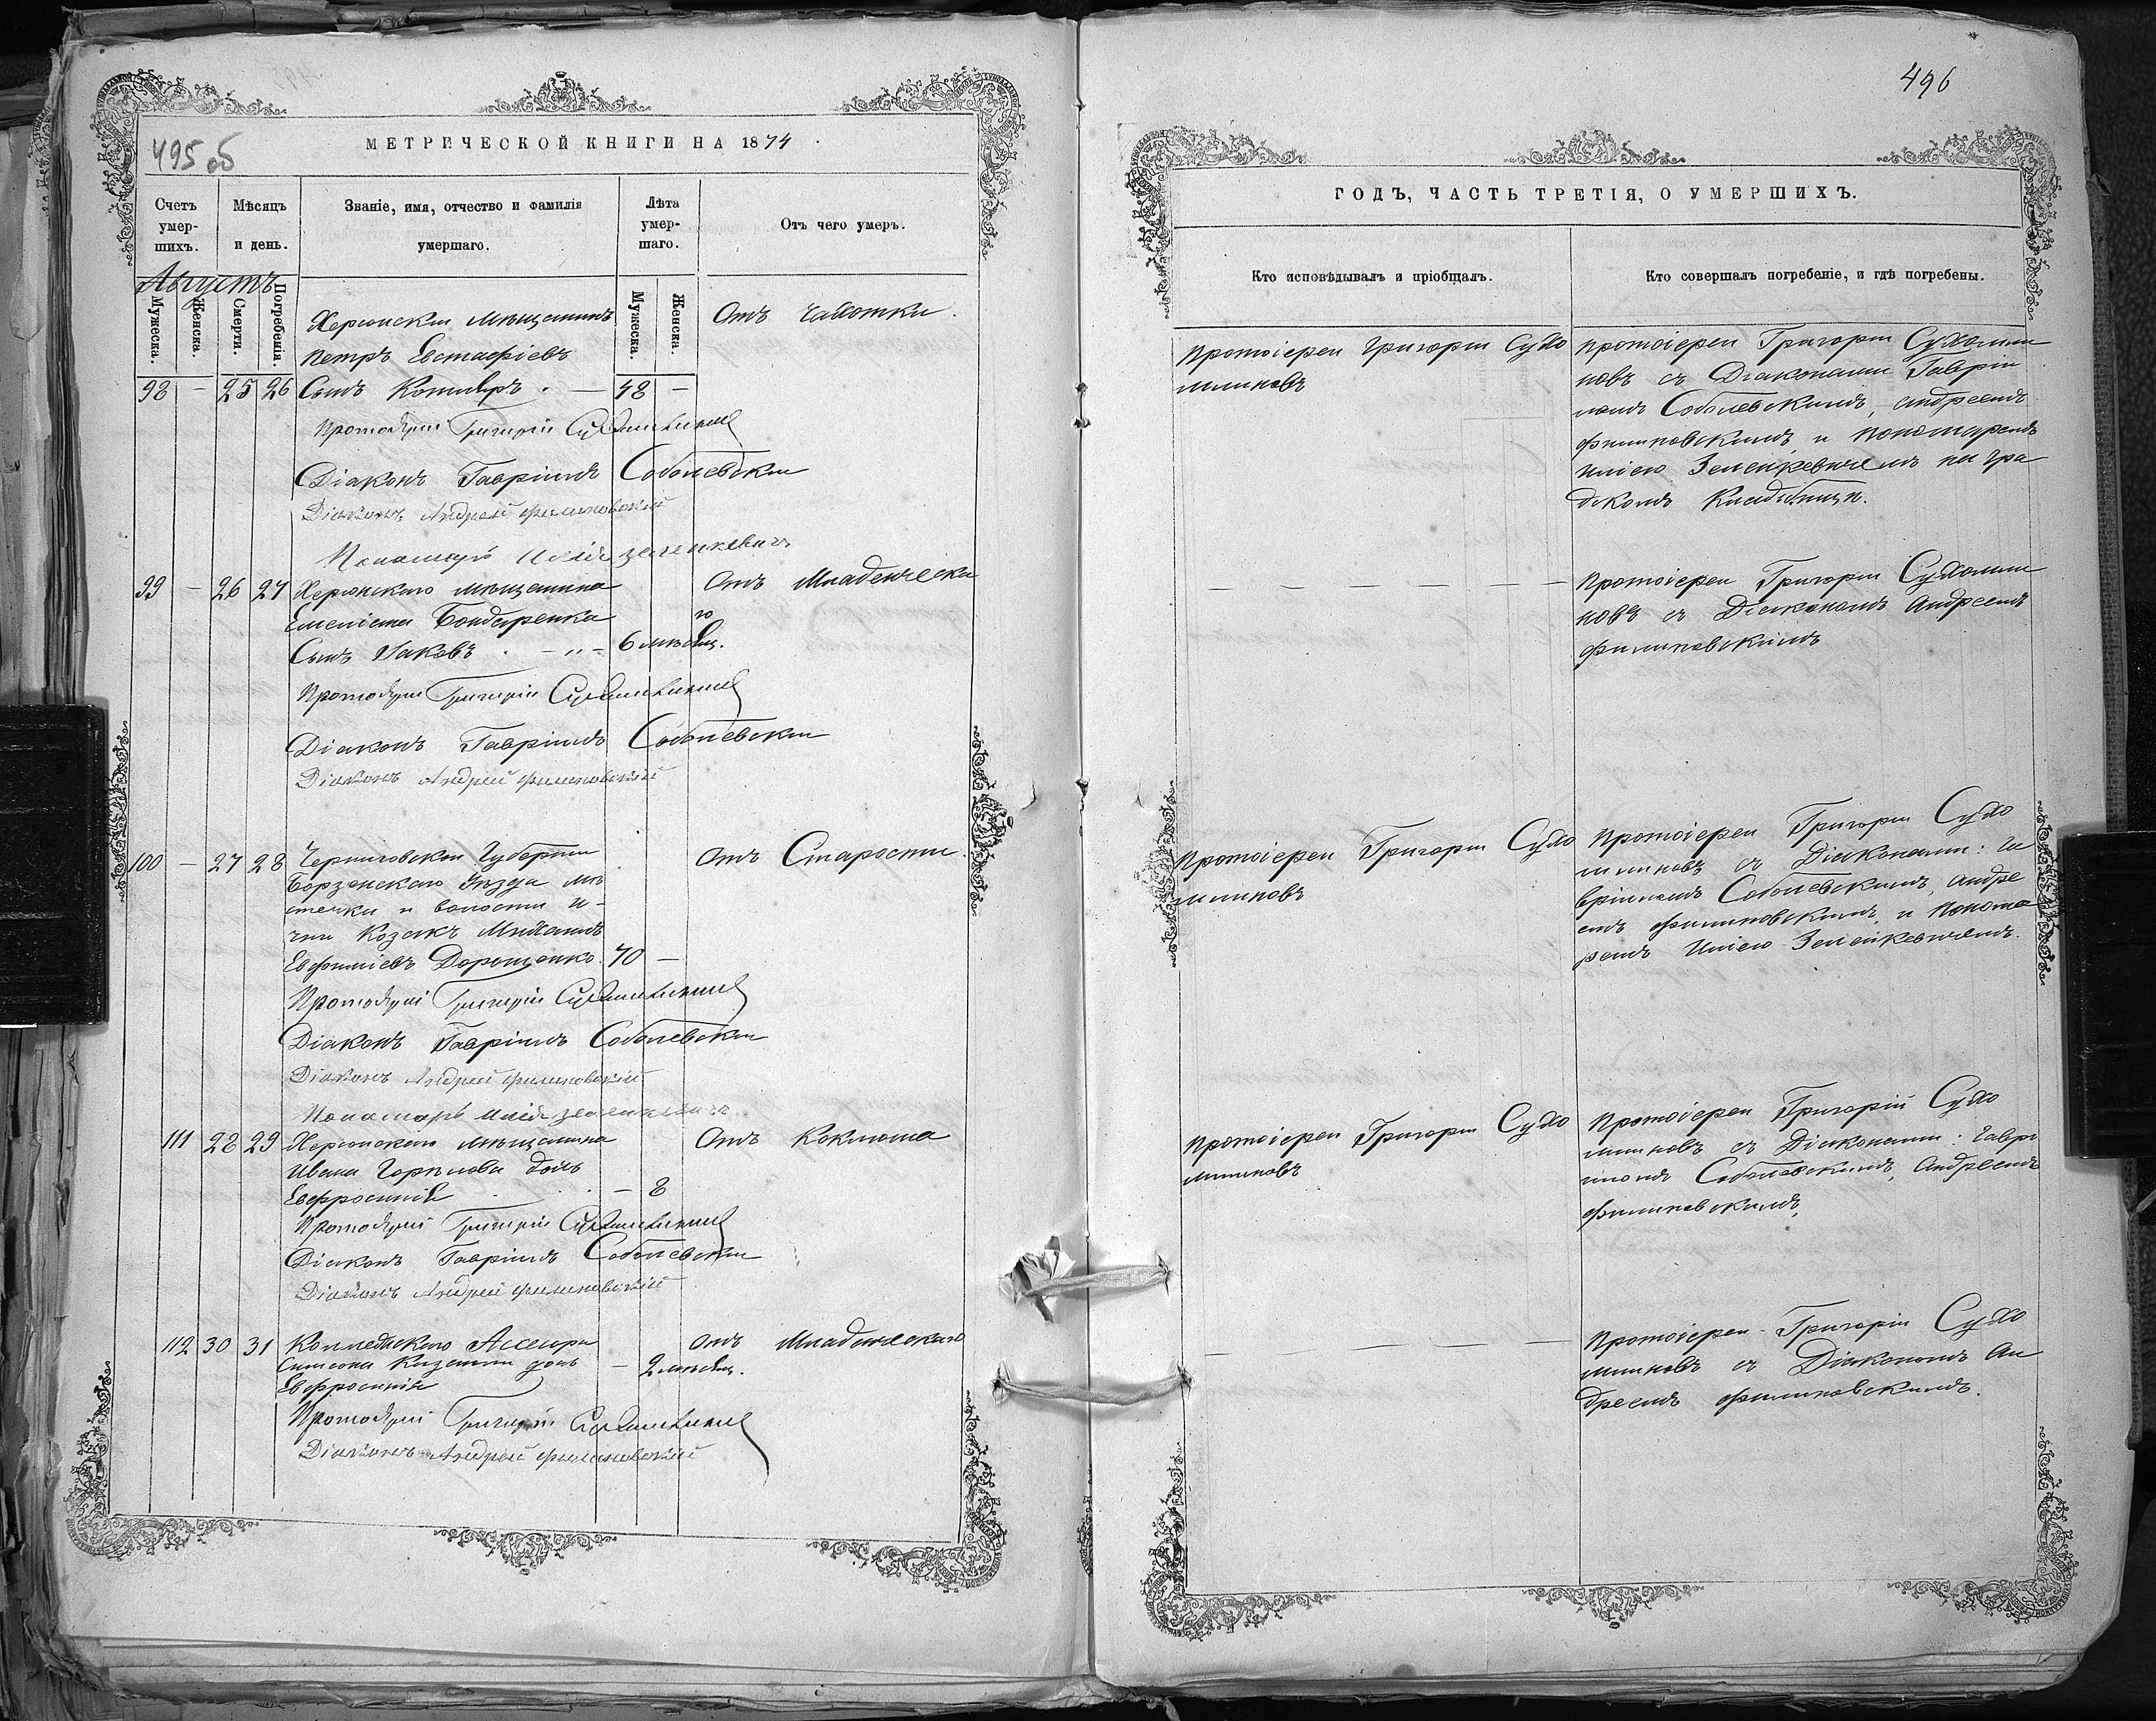 495 об
МЕТРИЧЕСКОЙ КНИГИ НА 1874
Счетъ умер-шихъ.
Мѣсяцъ и день.
Званіе, имя, отчество и фамилія умершаго.
Лѣта умер-шаго.
Отъ чего умеръ.
Августъ
Мужеска.
Женска.
Смерти.
Погребенія.
Мужеска.
Женска.
Херсонскій мѣщанинъ
Отъ чахотки.
Петръ Евстафіевъ
98 – 25 26 Сынъ 48 –
Протоіерей Григорій Сухомлиновъ
Діаконъ Гавріилъ Соболевскій
Діаконъ Андрей Филиповскій
Пономарь Илія Зеленкевичъ
99 – 26 27 Херсонскаго мѣщанина Отъ Младенческа
Бондаренка го
Сынъ Іаковъ 6 мѣсяц.
Протоіерей Григорій Сухомлиновъ
Діаконъ Гавріилъ Соболевскій
Діаконъ Андрей Филиповскій
100 – 27 28 Черниговской Губерніи Отъ Старости.
Борзенскаго Уѣзда мѣ
стечка и волости И-
чни Козакъ Михаилъ
Евфиміевъ Дорошенко. 70 –
Протоіерей Григорій Сухомлиновъ
Діаконъ Гавріилъ Соболевскій
Діаконъ Андрей Филиповскій
Пономарь Илія Зеленкевичъ
111 28 29 Херсонскаго мѣщанина Отъ Коклюша
Ивана Горѣлова дочь
Евфросинія – 8
Протоіерей Григорій Сухомлиновъ
Діаконъ Гавріилъ Соболевскій
Діаконъ Андрей Филиповскій
112 30 31 Коллежскаго Ассесора Отъ Младенческаго
Симеона дочь – 2 мѣсяц.
Евфросинія
Протоіерей Григорій Сухомлиновъ
Діаконъ Андрей Филиповскій
496
ГОДЪ, ЧАСТЬ ТРЕТІЯ, О УМЕРШИХЪ.
Кто исповѣдывалъ и пріобщалъ.
Кто совершалъ погребеніе, и гдѣ погребены.
Протоіерей Григорій Сухо
млиновъ
Протоіерей Григорій Сухомли
новъ съ Діаконами Гаврі
иломъ Соболевскимъ, Андреемъ
Филиповскимъ и пономаремъ
Иліею Зеленкевичемъ на гра
дскомъ Кладбищѣ.
– – – – –
Протоіерей Григорій Сухомли
новъ съ Діакономъ Андреемъ
Филиповскимъ
Протоіерей Григорій Сухо
млиновъ
Протоіерей Григорій Сухо
млиновъ съ Діаконами: Га
вріиломъ Соболевскимъ, Андре
емъ Филиповскимъ, и Понома
ремъ Иліею Зеленкевичемъ.
Протоіерей Григорій Сухо
млиновъ
Протоіерей Григорій Сухо
млиновъ съ Діаконами: Гаврі
иломъ Соболевскимъ, Андреемъ
Филиповскимъ,
– – – – –
Протоіерей Григорій Сухо
млиновъ съ Діакономъ Ан
дреемъ Филиповскимъ.